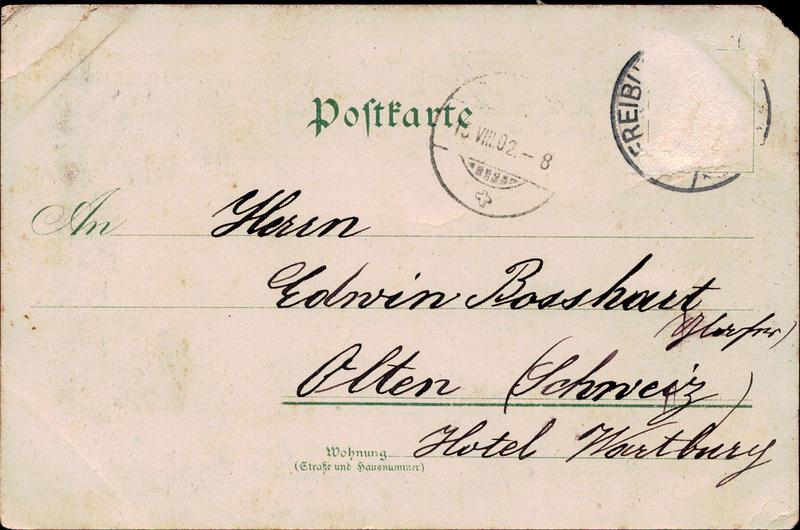 Postkarte
15.VIII.02.–8
FREIBU
An Herrn
Edwin Bosshart
(Glaser)
Olten (Schweiz)
Wohnung
(Straße und Hausnummer)
Hotel Wartburg